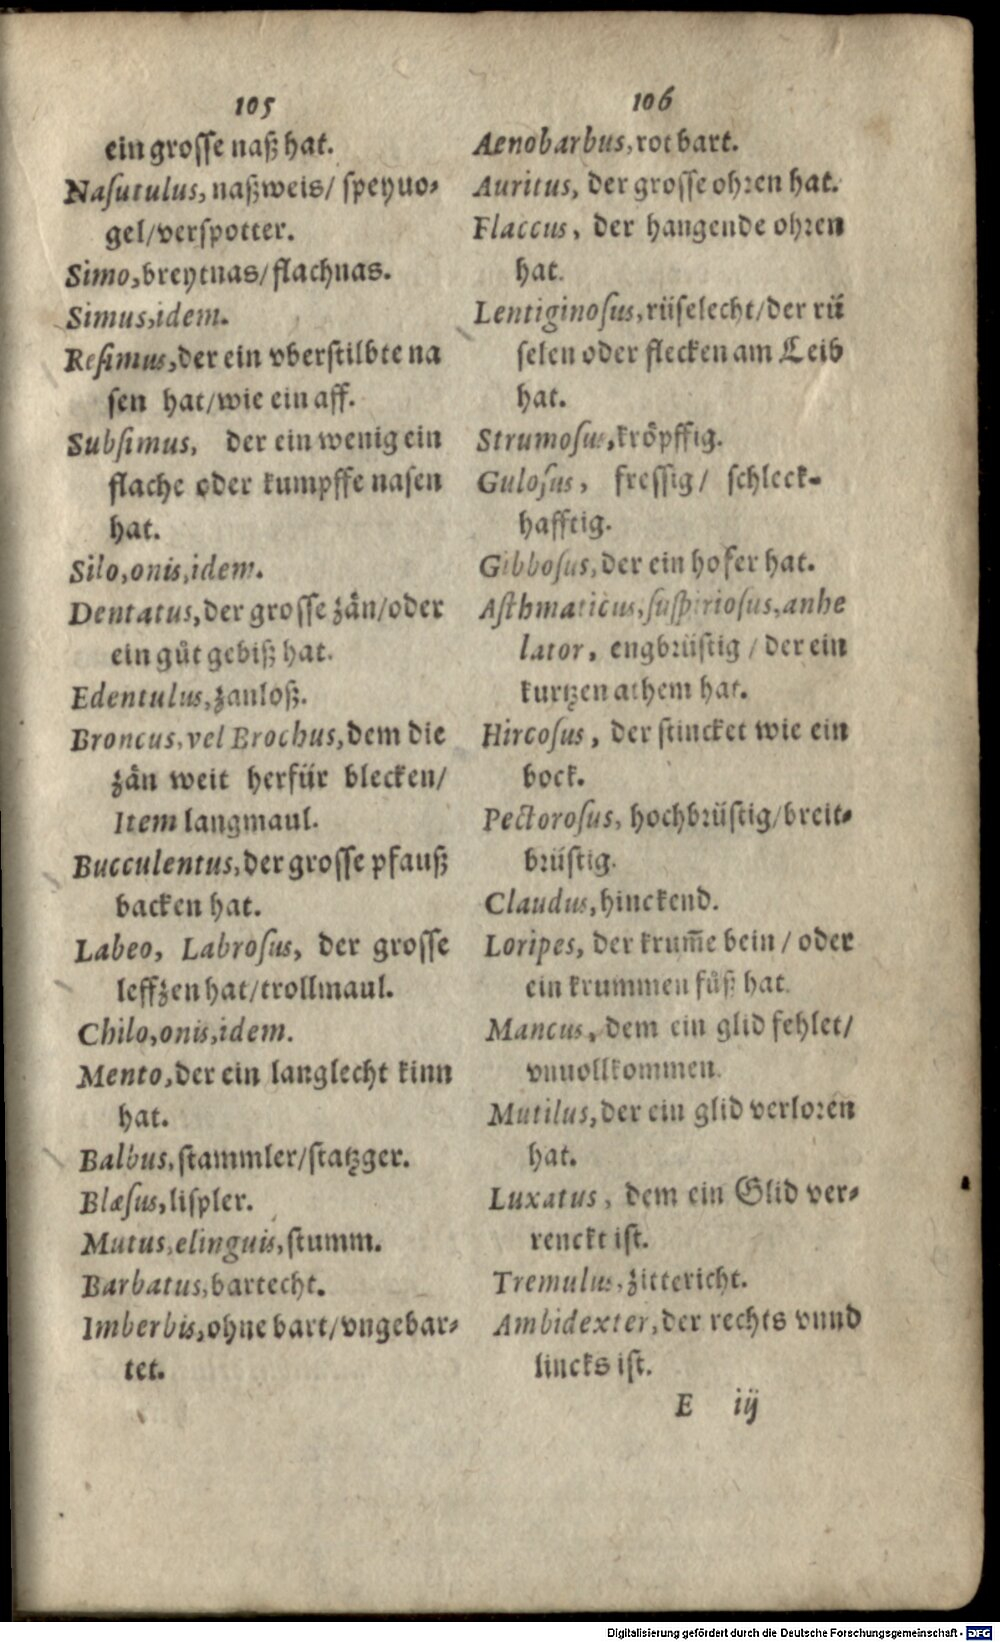 105
ein grosse naß hat.
Nasutulus, naßweis/ speyuo-
gel/verspotter.
Simo, breytnas/flachnas.
Simus, idem.
Resimus, der ein vberstilbte na
sen hat/wie ein aff.
Subsimus, der ein wenig ein
flache oder kumpffe nasen
hat.
Silo, onis, idem.
Dentatus, der grosse zän/oder
ein gůt gebiß hat.
Edentulus, zanloß.
Broncus, vel Brochus, dem die
zän weit herfür blecken/
Item langmaul.
Bucculentus, der grosse pfauß
backen hat.
Labeo, Labrosus, der grosse
leffzen hat/trollmaul.
Chilo, onis, idem.
Mento, der ein langlecht kinn
hat.
Balbus, stammler/statzger.
Blæsus, lispler.
Mutus, elinguis, stumm.
Barbatus, bartecht.
Imberbis, ohne bart/vngebar-
tet.
106
Aenobarbus, rot bart.
Auritus, der grosse ohren hat.
Flaccus, der hangende ohren
hat.
Lentiginosus, rüselecht/der rü
selen oder flecken am Leib
hat.
Strumosus, kröpffig.
Gulosus, fressig/ schleck-
hafftig.
Gibbosus, der ein hofer hat.
Asthmaticus, suspiriosus, anhe
lator, engbrüstig / der ein
kurtzen athem hat.
Hircosus, der stincket wie ein
bock.
Pectorosus, hochbrüstig/breit-
brüstig.
Claudus, hinckend.
Loripes, der krum̅e bein / oder
ein krummen fůß hat.
Mancus, dem ein glid fehlet/
vnuollkommen.
Mutilus, der ein glid verloren
hat.
Luxatus, dem ein Glid ver-
renckt ist.
Tremulus, zittericht.
Ambidexter, der rechts vnnd
lincks ist.
E iij
Digitalisierung gefördert durch die Deutsche Forschungsgemeinschaft - DFG